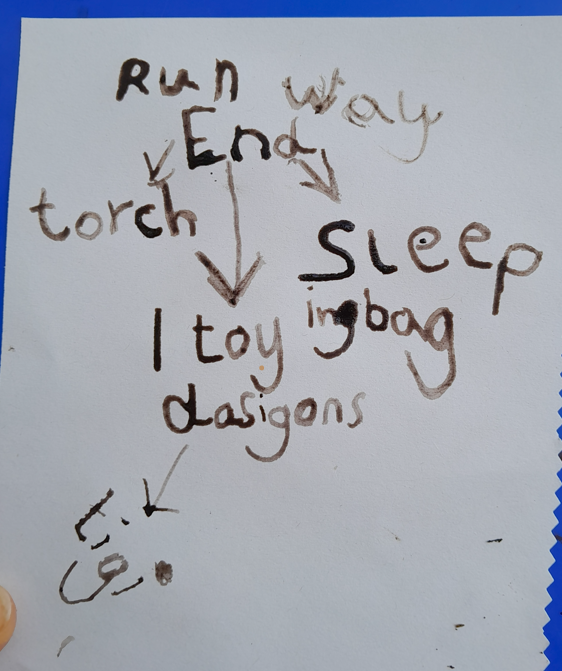 Run Way
End
torch
Sleep
ingbag
1 toy
dasigons